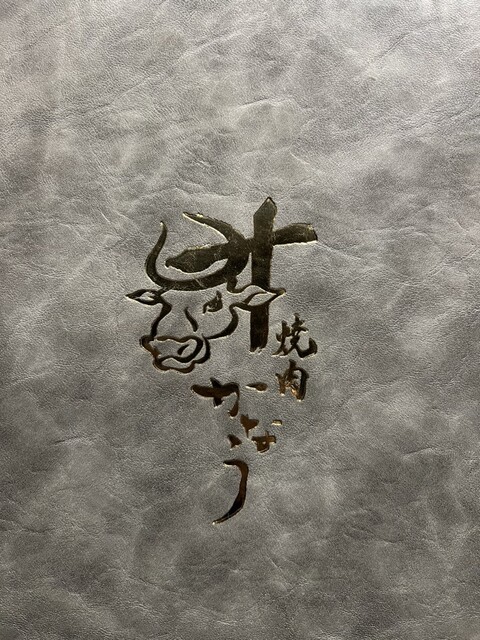 焼肉
かなう